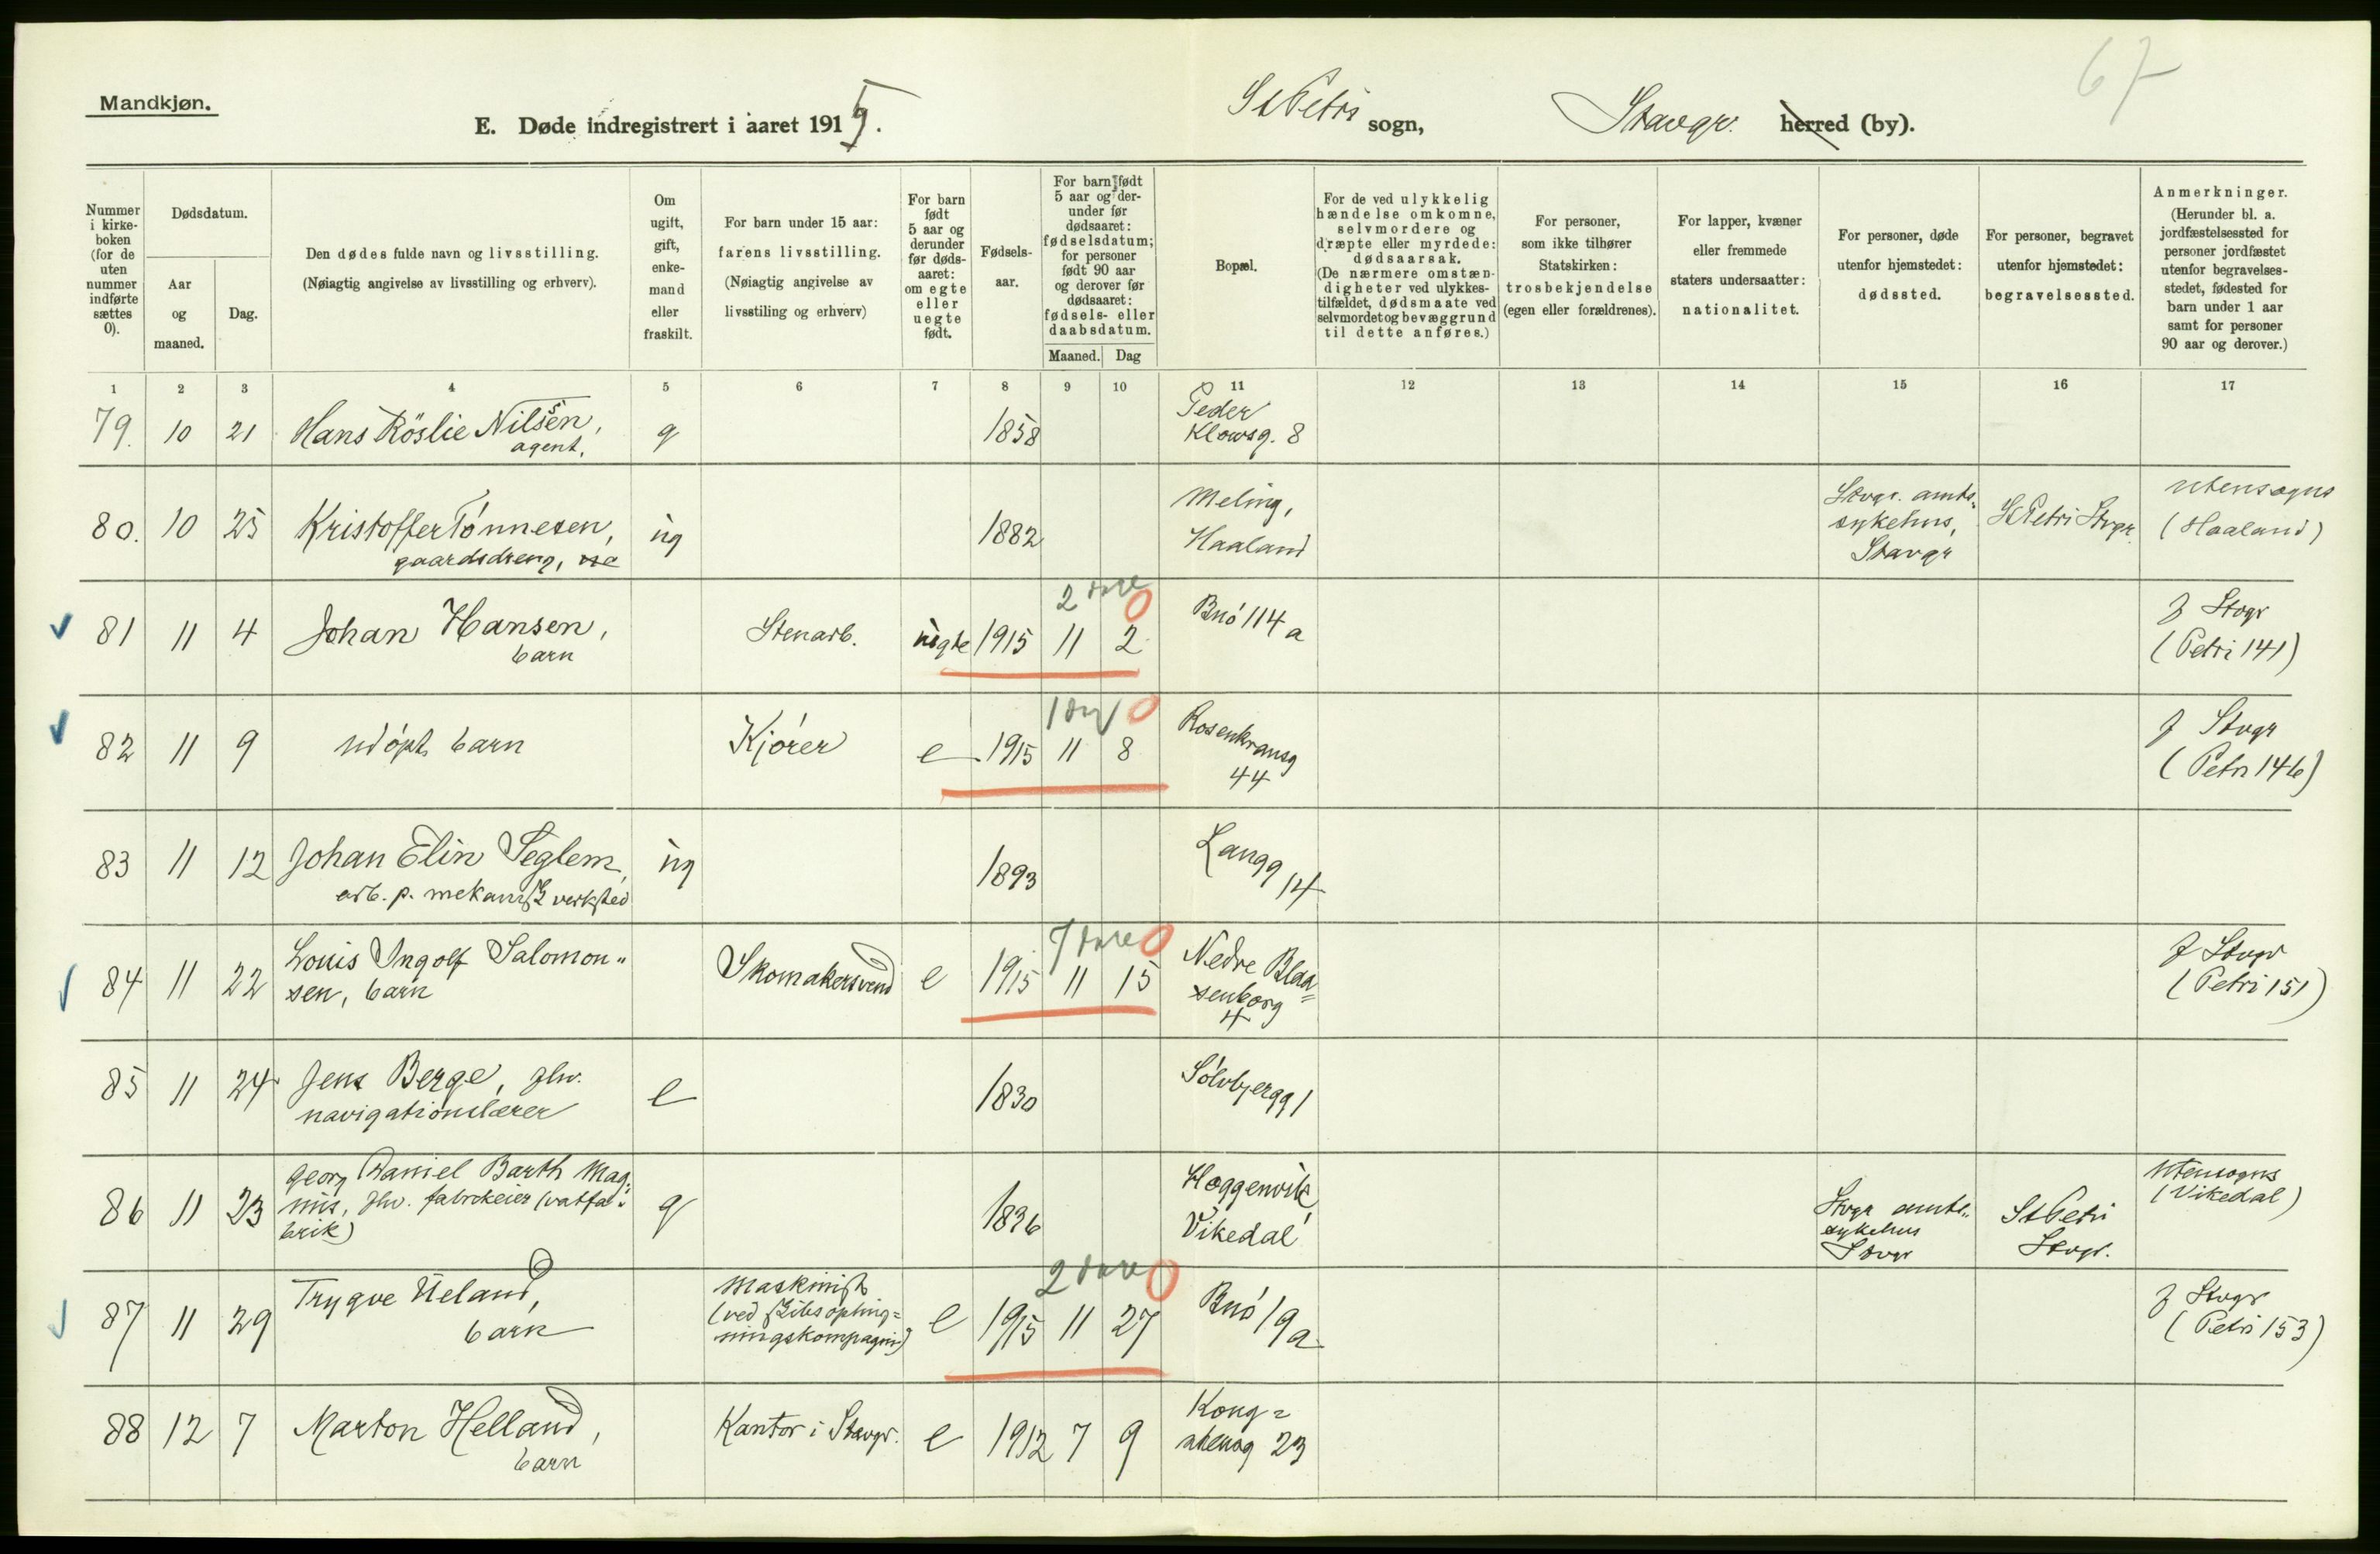 67
Mandkjøn.
E. Døde indregistrert i aaret 1915.
St Petri sogn, Stavgr. herred (by).
Nummer i kirkeboken (for de uten nummer indførte sættes 0).
Dødsdatum.
Aar og maaned.
Dag.
Den dødes fulde navn og livsstilling.
(Nøiagtig angivelse av livsstilling og erhverv).
Om ugift, gift, enkemand eller fraskilt.
For barn under 15 aar:
farens livsstilling.
(Nøiagtig angivelse av livsstiling og erhverv)
For barn født 5 aar og derunder før dødsaaret: om egte eller uegte født.
Fødselsaar.
For barn født 5 aar og derunder før dødsaaret: fødselsdatum; for personer født 90 aar og derover før dødsaaret: fødsels- eller daabsdatum.
Maaned. Dag
Bopæl.
For de ved ulykkelig hændelse omkomne, selvmordere og dræpte eller myrdede: dødsaarsak.
(De nærmere omstændigheter ved ulykkestilfældet, dødsmaate ved selvmordet og bevæggrund til dette anføres.)
For personer, som ikke tilhører Statskirken: trosbekjendelse (egen eller forældrenes).
For lapper, kvæner eller fremmede staters undersaatter: nationalitet.
For personer, døde utenfor hjemstedet: dødssted.
For personer, begravet utenfor hjemstedet: begravelsessted.
Anmerkninger.
(Herunder bl. a. jordfæstelsessted for personer jordfæstet utenfor begravelsesstedet, fødested for barn under 1 aar samt for personer 90 aar og derover.)
1 2 3 4 5 6 7 8 9 10 11 12 13 14 15 16 17
79. 10 21 Hans Röslie Nilsen, agent. g 1858 Peder Klowsg. 8
80. 10 25 Kristoffer Tønnesen, gaardsdreng, ug 1882 Meling, Haaland Stvgr. amtssykehus, Stavgr St Petri Stvgr. utensogns (Haaland)
2 dage 0
81 11 4 Johan Hansen, barn Stenarb. uegte 1915 11 2 Buö 114 a f Stvgr (Petri 141)
1 dag 0
82 11 9 udøpt barn Kjører e 1915 11 8 Rosenkransg 44 f Stvgr (Petri 146)
83 11 12 Johan Elin Seglem, arb. p. mekanisk verksted ug 1893 Langg 14
7 dage 0
84 11 22 Louis Ingolf Salomonsen, barn Skomakersvend e 1915 11 15 Nedre Blaasenborg 4 f Stvgr (Petri 151)
85 11 24 Jens Berge, fhv. navigationslærer e 1830 Sølvbjergg 1
86 11 23 Georg Daniel Barth Magnus, fhv. fabrikeier (vatfabrik) g 1836 Hoggenvik, Vikedal Stvgr amtssykehus Stvgr St Petri Stvgr. Utensogns (Vikedal)
2 dage 0
87 11 29 Trygve Ueland, barn Maskinist e 1915 11 27 Buö 19a f Stvgr (Petri 153)
88 12 7 Marton Helland, barn Kantor i Stavgr. e 1912 7 9 Kongstensg 23